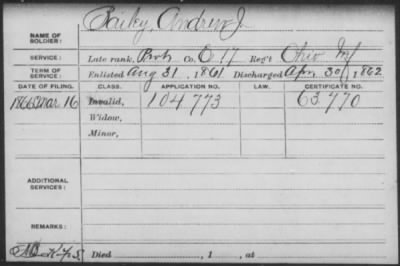 Bailey, Andrew J.
NAME OF SOLDIER:
SERVICE: Late rank, Prvt Co. E 17 Reg't Ohio Inf
TERM OF SERVICE: Enlisted Aug 31, 1861 Discharged Apr 30, 1862
DATE OF FILING. CLASS. APPLICATION NO. LAW. CERTIFICATE NO.
1866 Mar 16 Invalid, 104 773 63 770
Widow,
Minor,
ADDITIONAL SERVICES:
REMARKS:
Died , 1 , at